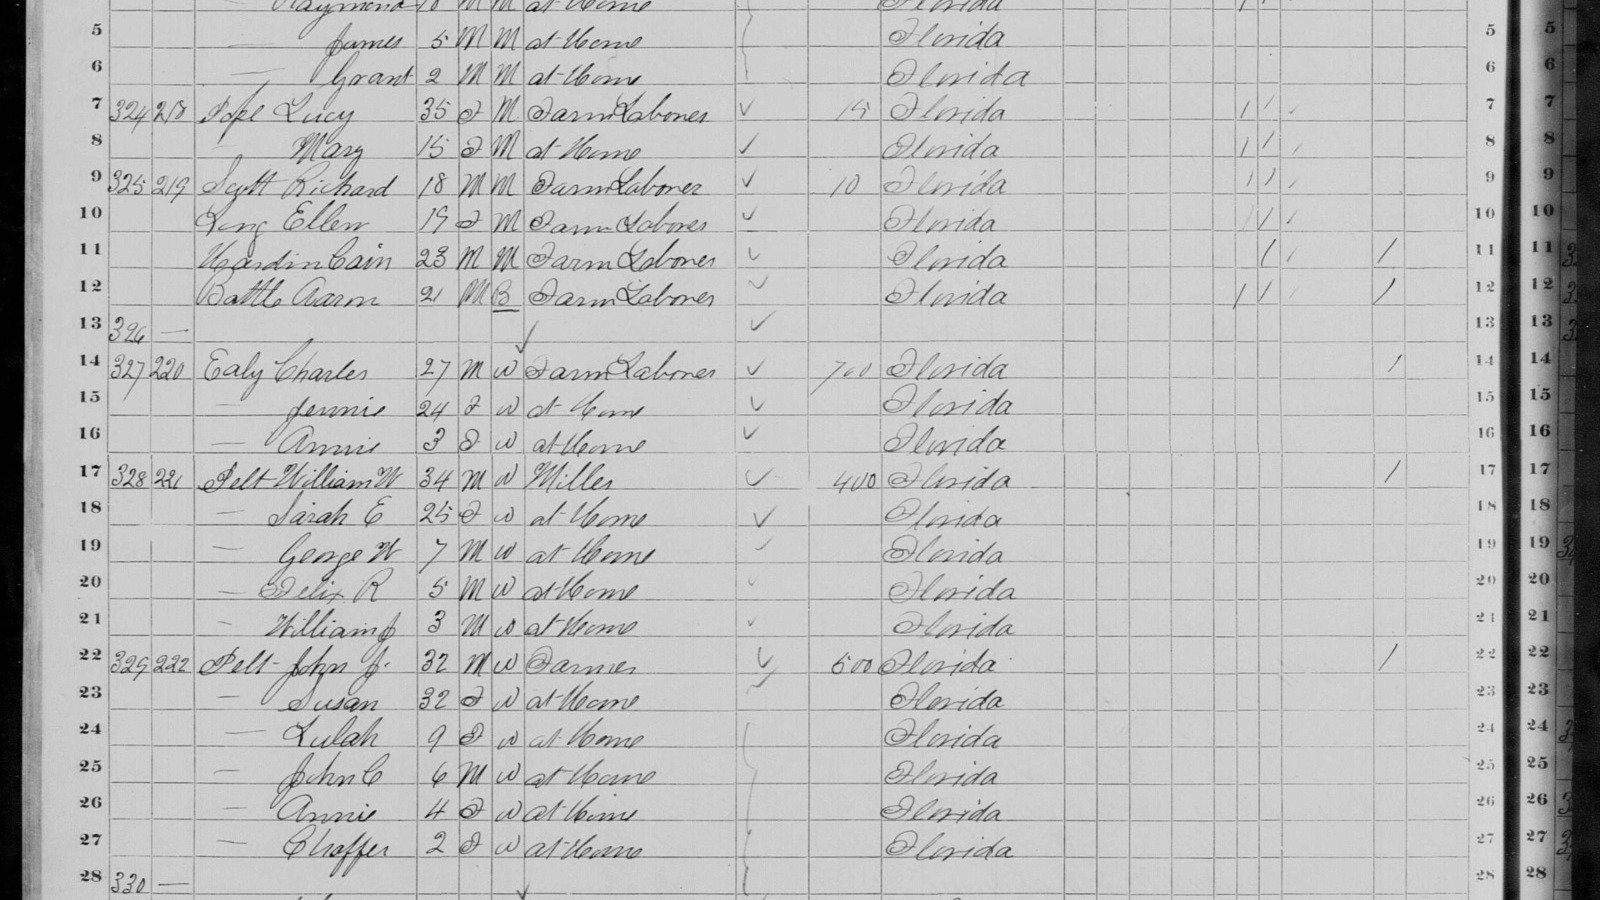 Raymond 10 M M at Home Florida
5 — James 5 M M at Home Florida 5 5
6 — Grant 2 M M at Home Florida 6 6
7 324 218 Pope Lucy 35 F M Farm Laborer ✓ 15 Florida 1 1 7 7
8 " Mary 15 F M at Home ✓ Florida 1 1 8 8
9 325 219 Richard 18 M M Farm Laborer ✓ 10 Florida 1 1 9 9
10 Long Ellen 19 F M Farm Laborer ✓ Florida 1 1 10 10
11 Hardin Cain 23 M M Farm Laborer ✓ Florida 1 1 11 11
12 Battle Aaron 21 M B Farm Laborer ✓ Florida 1 1 1 12 12
13 326 — ✓ ✓ 13 13
14 327 220 Ealy Charles 27 M W Farm Laborer ✓ 700 Florida 1 14 14
15 — Jennie 24 F W at Home ✓ Florida 15 15
16 — Annie 3 F W at Home ✓ Florida 16 16
17 328 221 Pelt William W 34 M W Miller ✓ 400 Florida 1 17 17
18 — Sarah E 25 F W at Home ✓ Florida 18 18
19 — George W 7 M W at Home ✓ Florida 19 19
20 — Felix R 5 M W at Home ✓ Florida 20 20
21 — William J 3 M W at Home ✓ Florida 21 21
22 329 222 Pelt John J. 32 M W Farmer ✓ 500 Florida 1 22 22
23 — Susan 32 F W at Home Florida 23 23
24 — Lulah 9 F W at Home Florida 24 24
25 — John C 6 M W at Home Florida 25 25
26 — Annie 4 F W at Home Florida 26 26
27 — 2 F W at Home Florida 27 27
28 330 — ✓ 28 28